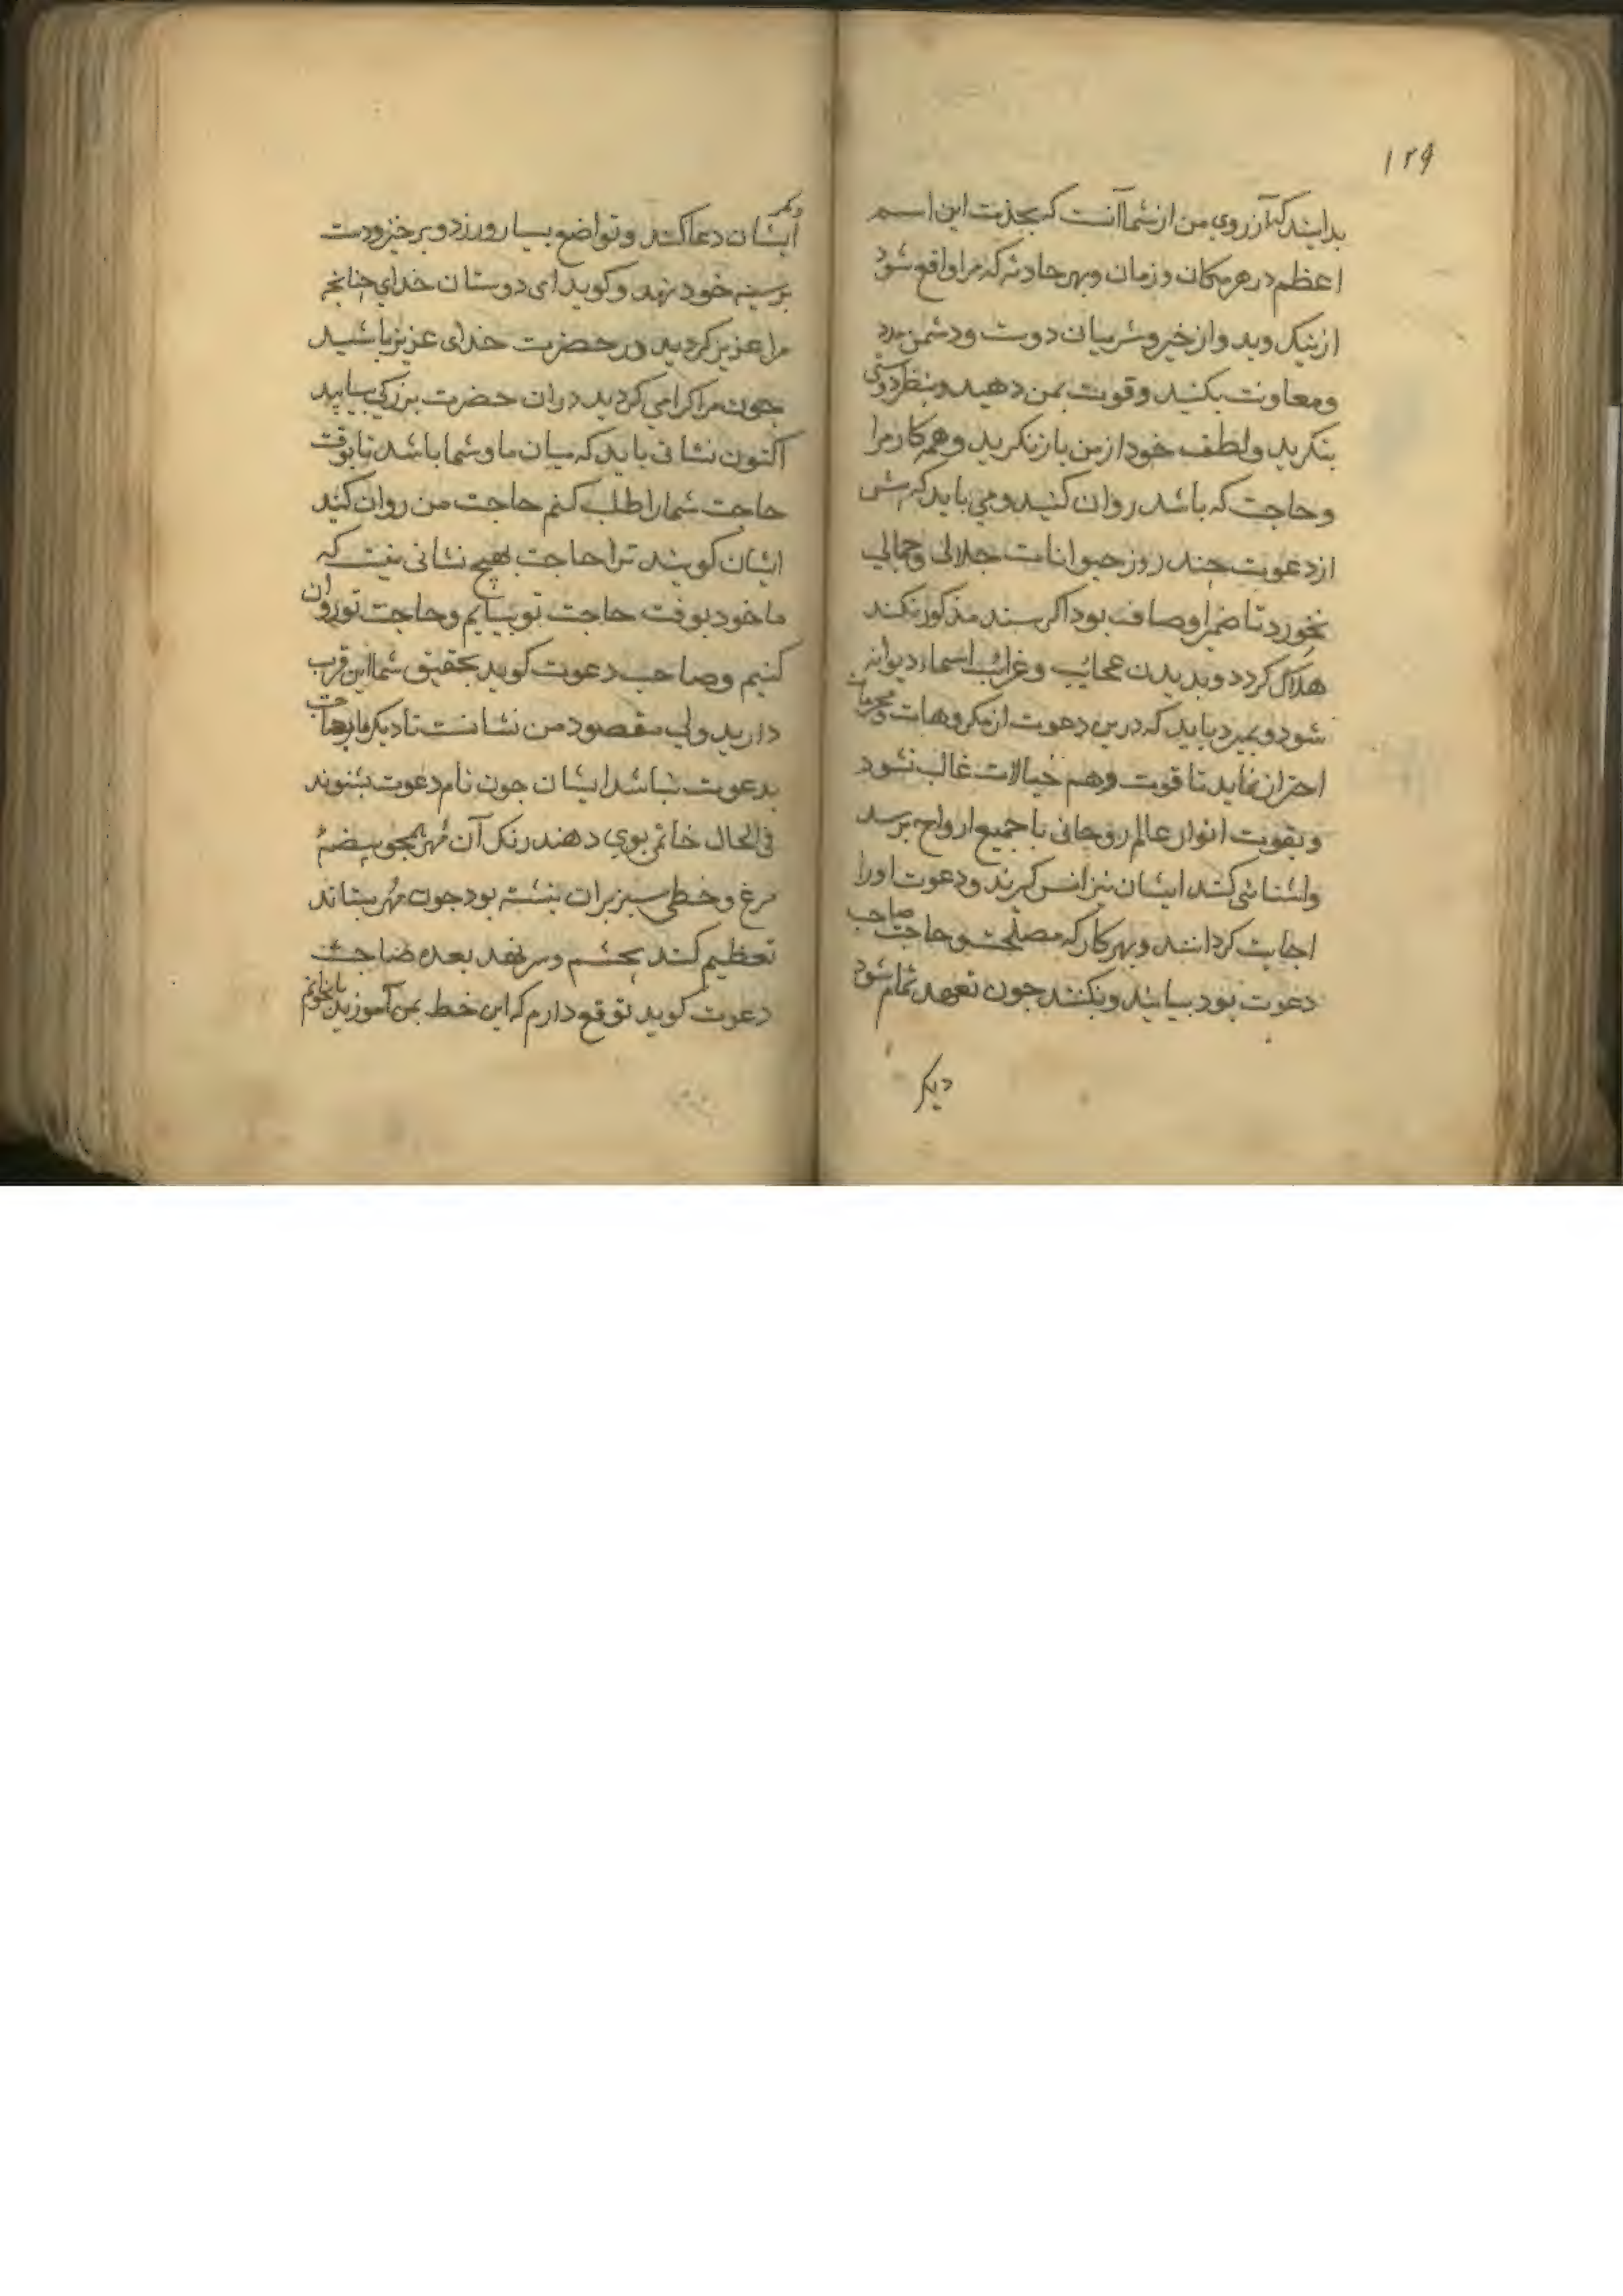 ۱۲۹
بدانید که آرزوی من از شما آنست که بحذمت این اسم
اعظم در هر مکان و زمان و بهر حادثه که مرا واقع شود
از نیک و بد و از خیر و شر بیان دوست و دشمن مدد
و معاونت بکنید و قوت بمن دهید و بنظر دوستی
بنکرید و لطف خود از من باز نکرید و همه کار مرا
و حاجت که باشد روان کنید و می باید که پیش
از دعوت چند روز حیوانات جلالی و جمالی
نخورد تا ضمیر او صاف بود اکر بسند مذکور نکند
هلاک کردد و بدیدن عجایب و غرائب اسماء دیوانه
شود و بمیرد باید که درین دعوت از مکروهات و محرمات
احتراز نماید تا قوت وهم خیالات غالب نشود
و بقوت انوار عالم روحانی با جمیع ارواح برسد
و اشنائی کند ایشان نیز انس کیرند و دعوت او را
اجابت کردانند و بهر کار که مصلحت و حاجت صاحب
دعوت بود بیایند و بکنند جون تعهد تمام شود
دیکر
دیکر
ایشان دعا کند و تواضع بسیار ورزد و برخیزد و دست
بر سینه خود نهد و کوید ای دوستان خدای جنانجه
مرا عزیز کردید در حضرت خدای عزیز باشید
جون مرا کرامی کردید در ان حضرت بزرکی بیابید
اکنون نشانی باید که میان ما و شما باشد تا بوقت
حاجت شما را طلب کنم حاجت من روان کنید
ایشان کویند ترا حاجت بهیچ نشانی نیست که
ما خود بوقت حاجت تو بیایم و حاجت تو روان
کنیم و صاحب دعوت کوید بحقیق شما این قرب
دارید ولی مقصود من نشانست تا دیکر مارا حاجت
بدعوت نباشد ایشان جون نام دعوت بشنوند
فی الحال خاتمی بوی دهند رنک آن مهر همجو بیضه
مرغ و خطی سبز بران نبشته بود جون مهر بستاند
تعظیم کند بجشم و سر نهد بعده صاحب
دعوت کوید توقع دارم که این خط بمن آموزید تا بخوانم